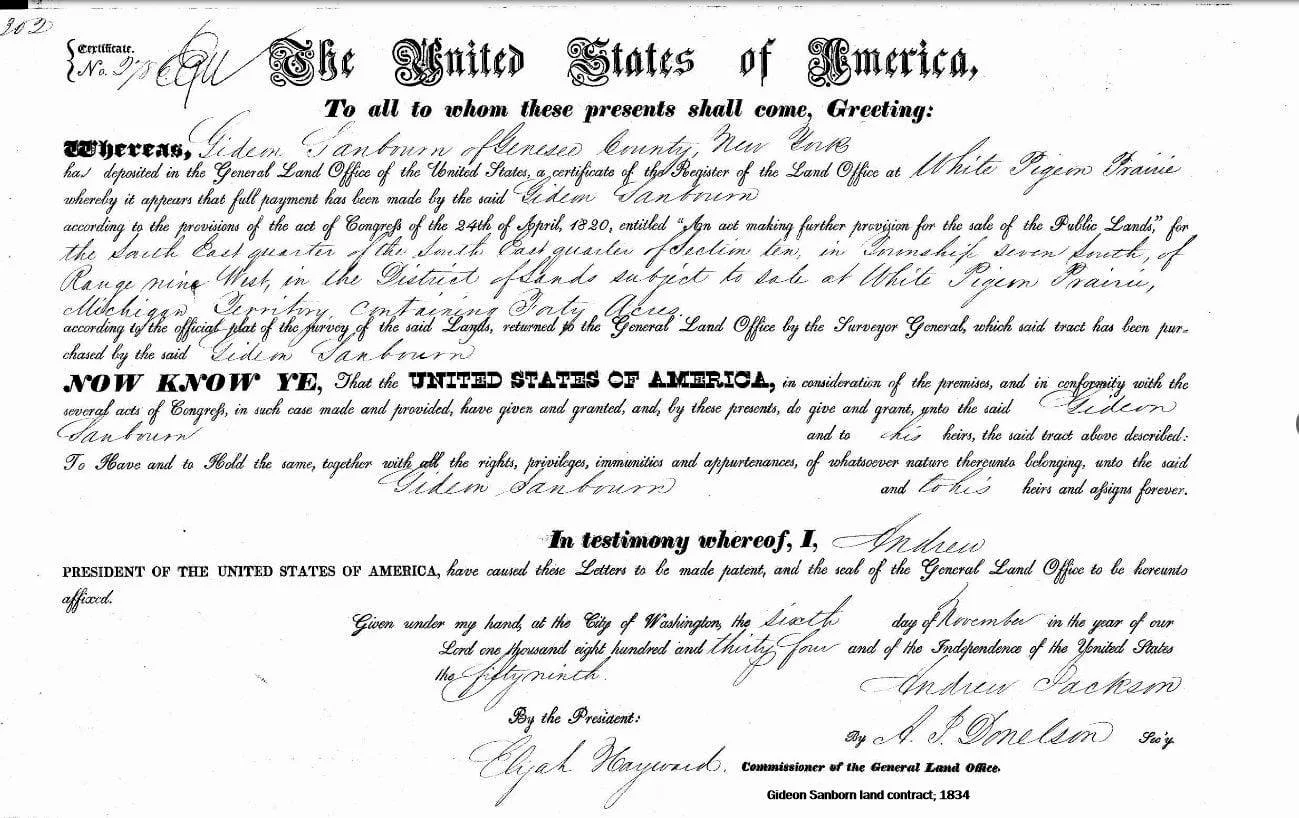 202
Certificate.
No.
The United States of America,
To all to whom these presents shall come, Greeting:
Whereas, Gideon Sanbourn of Genesee County, New York
has deposited in the General Land Office of the United States, a certificate of the Register of the Land Office at White Pigeon Prairie
whereby it appears that full payment has been made by the said Gideon Sanbourn
according to the provisions of the act of Congress of the 24th of April, 1820, entitled "An act making further provision for the sale of the Public Lands," for
the South East quarter of the South East quarter of Section ten, in Township seven South, of
Range nine West, in the District of Lands subject to sale at White Pigeon Prairie,
Michigan Territory, containing Forty Acres,
according to the official plat of the survey of the said Lands, returned to the General Land Office by the Surveyor General, which said tract has been pur-
chased by the said Gideon Sanbourn
NOW KNOW YE, That the UNITED STATES OF AMERICA, in consideration of the premises, and in conformity with the
several acts of Congress, in such case made and provided, have given and granted, and, by these presents, do give and grant, unto the said Gideon
Sanbourn and to his heirs, the said tract above described:
To Have and to Hold the same, together with all the rights, privileges, immunities and appurtenances, of whatsoever nature thereunto belonging, unto the said
Gideon Sanbourn and to his heirs and assigns forever.
In testimony whereof, I, Andrew
PRESIDENT OF THE UNITED STATES OF AMERICA, have caused these Letters to be made patent, and the seal of the General Land Office to be hereunto
affixed.
Given under my hand, at the City of Washington, the sixth day of November in the year of our
Lord one thousand eight hundred and thirty four and of the Independence of the United States
the fifty ninth.
Andrew Jackson
By the President:
By A. J. Donelson Sec'y.
Elijah Hayward. Commissioner of the General Land Office.
Gideon Sanborn land contract; 1834